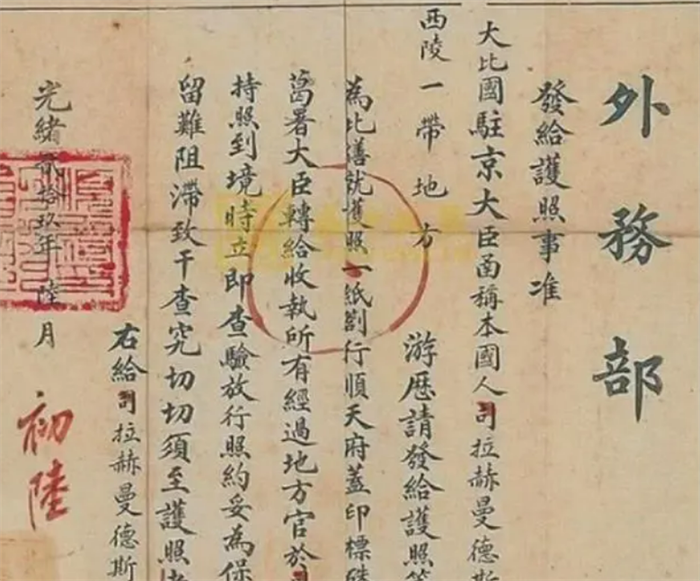 外務部
發給護照事准
大比國駐京大臣函稱本國人司拉赫曼德斯
西陵一帶地方
游歷請發給護照等
為此繕就護照一紙劄行順天府蓋印標硃
葛署大臣轉給收執所有經過地方官於
持照到境時立即查驗放行照約妥為保
留難阻滯致干查究切切須至護照者
右給司拉赫曼德斯
光緒貳拾玖年陸月
初陸